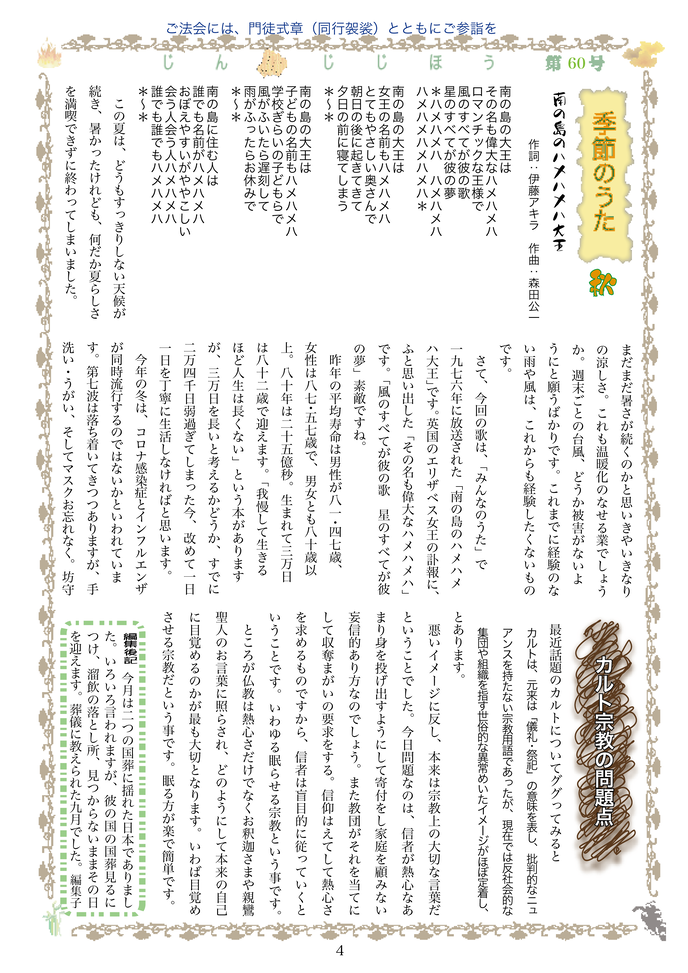 ご法会には、門徒式章（同行袈裟）とともにご参詣を
じんじじほう 第60号
季節のうた 秋
南の島のハメハメハ大王
作詞：伊藤アキラ 作曲：森田公一
南の島の大王は
その名も偉大なハメハメハ
ロマンチックな王様で
風のすべてが彼の歌
星のすべてが彼の夢
＊ハメハメハ ハメハメハ
ハメハメハメハメハ＊
南の島の大王は
女王の名前もハメハメハ
とてもやさしい奥さんで
朝日の後に起きてきて
夕日の前に寝てしまう
＊～＊
南の島の大王は
子どもの名前もハメハメハ
学校ぎらいの子どもらで
風がふいたら遅刻して
雨がふったらお休みで
＊～＊
南の島に住む人は
誰でも名前がハメハメハ
おぼえやすいがややこしい
会う人会う人ハメハメハ
誰でも誰でもハメハメハ
＊～＊
この夏は、どうもすっきりしない天候が
続き、暑かったけれども、何だか夏らしさ
を満喫できずに終わってしまいました。
まだまだ暑さが続くのかと思いきやいきなり
の涼しさ。これも温暖化のなせる業でしょう
か。週末ごとの台風、どうか被害がないよ
うにと願うばかりです。これまでに経験のな
い雨や風は、これからも経験したくないもの
です。
さて、今回の歌は、「みんなのうた」で
一九七六年に放送された「南の島のハメハメ
ハ大王」です。英国のエリザベス女王の訃報に、
ふと思い出した「その名も偉大なハメハメハ」
です。「風のすべてが彼の歌 星のすべてが彼
の夢」素敵ですね。
昨年の平均寿命は男性が八一・四七歳、
女性は八七・五七歳で、男女とも八十歳以
上。八十年は二十五億秒。生まれて三万日
は八十二歳で迎えます。「我慢して生きる
ほど人生は長くない」という本があります
が、三万日を長いと考えるかどうか、すでに
二万四千日弱過ぎてしまった今、改めて一日
一日を丁寧に生活しなければと思います。
今年の冬は、コロナ感染症とインフルエンザ
が同時流行するのではないかといわれていま
す。第七波は落ち着いてきつつありますが、手
洗い・うがい、そしてマスクお忘れなく。坊守
カルト宗教の問題点
最近話題のカルトについてググってみると
カルトは、元来は「儀礼・祭祀」の意味を表し、批判的なニュ
アンスを持たない宗教用語であったが、現在では反社会的な
集団や組織を指す世俗的な異常めいたイメージがほぼ定着し、
とあります。
悪いイメージに反し、本来は宗教上の大切な言葉だ
ということでした。今日問題なのは、信者が熱心なあ
まり身を投げ出すようにして寄付をし家庭を顧みない
妄信的あり方なのでしょう。また教団がそれを当てに
して収奪まがいの要求をする。信仰はえてして熱心さ
を求めるものですから、信者は盲目的に従っていくと
いうことです。いわゆる眠らせる宗教という事です。
ところが仏教は熱心さだけでなくお釈迦さまや親鸞
聖人のお言葉に照らされ、どのようにして本来の自己
に目覚めるのかが最も大切となります。いわば目覚め
させる宗教だという事です。眠る方が楽で簡単です。
編集後記 今月は二つの国葬に揺れた日本でありまし
た。いろいろ言われますが、彼の国の国葬見るに
つけ、溜飲の落とし所、見つからないままその日
を迎えます。葬儀に教えられた九月でした。編集子
4